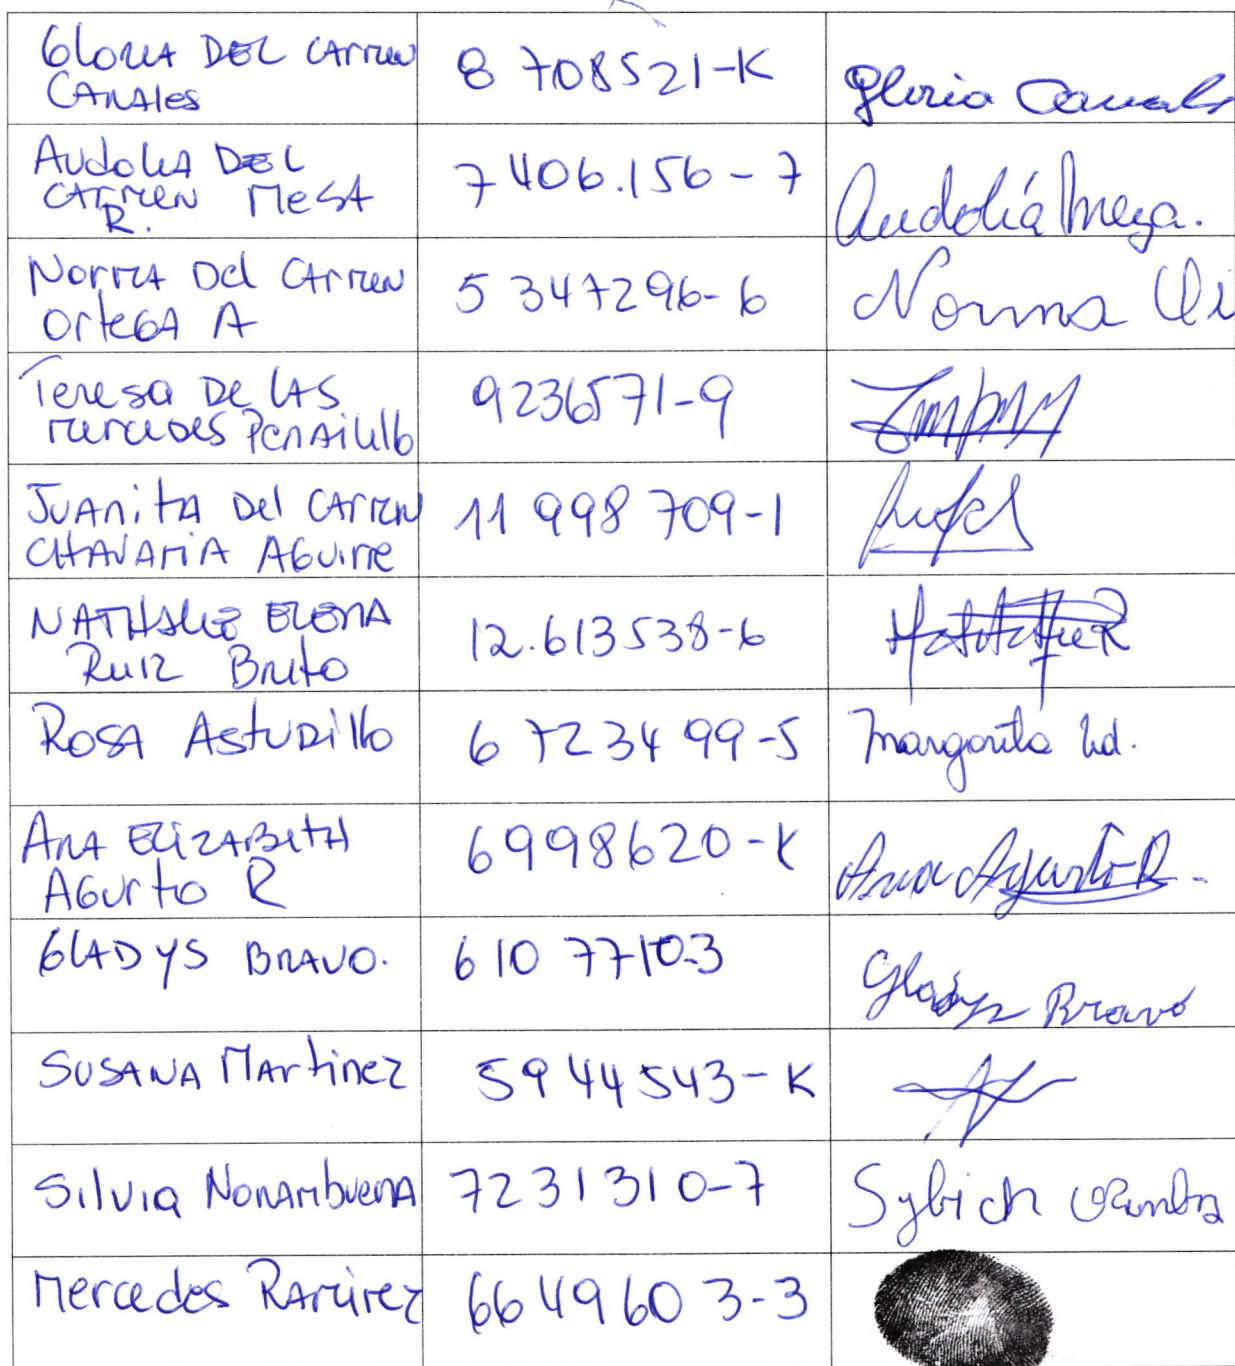 Gloria DEL CArmen
CAnAles
8 708521-K
Gloria Canales
Audolia DEL
CArmen MesA
R.
7406.156-7
Audoliá Meza.
NormA Del CArmen
OrteGA A
5 347296-6
Norma
Teresa De lAS
mercedes PenAilillo
9236571-9
JUAnitA Del CArmen
CHAVArriA AGuirre
11 998 709-1
NATHAlie ELENA
Ruiz Brito
12.613538-6
ROSA AstuDillo
6 7234 99-5
Margarita
AnA ELizABetH
AGurto R
6998620-K
Ana Agurto R.
GlADYS BrAVO.
610 77103
Gladys Bravo
SUSANA MArtinez
5944543-K
Silvia NonAmbuenA
7231310-7
Mercedes RAmirez
6649603-3